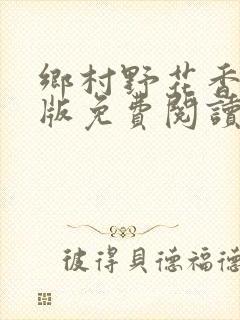 鄉村野花香
版免費閱讀
彼得貝德福德